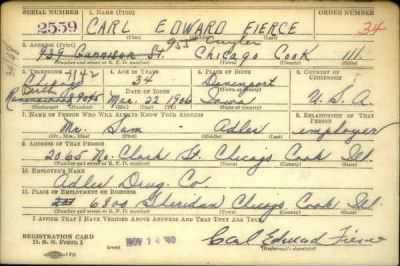 SERIAL NUMBER 1. NAME (Print)
2559 CARL EDWARD FIERCE 34
(First) (Middle) (Last)
2. ADDRESS (Print)
939 St. Chicago Cook Ill.
(Number and street or R. F. D. number) (Town) (County) (State)
3. TELEPHONE 4. AGE IN YEARS 5. PLACE OF BIRTH 6. COUNTRY OF CITIZENSHIP
34 Davenport
DATE OF BIRTH
9095 Mar. 22 1906 Iowa U. S. A.
(Exchange) (Number) (Mo.) (Day) (Yr.) (State or country)
7. NAME OF PERSON WHO WILL ALWAYS KNOW YOUR ADDRESS 8. RELATIONSHIP OF THAT PERSON
Mr. Sam - Adler employer
(Mr., Mrs., Miss) (First) (Middle) (Last)
9. ADDRESS OF THAT PERSON
2065 No. Clark St. Chicago Cook Ill.
(Number and street or R. F. D. number) (Town) (County) (State)
10. EMPLOYER'S NAME
Adler Drug Co.
11. PLACE OF EMPLOYMENT OR BUSINESS
6800 Sheridan Chicago Cook Ill.
(Number and street or R. F. D. number) (Town) (County) (State)
I AFFIRM THAT I HAVE VERIFIED ABOVE ANSWERS AND THAT THEY ARE TRUE.
REGISTRATION CARD
D. S. S. FORM 1 NOV 14 '40 Carl Edward Fierce
(Registrant's signature)